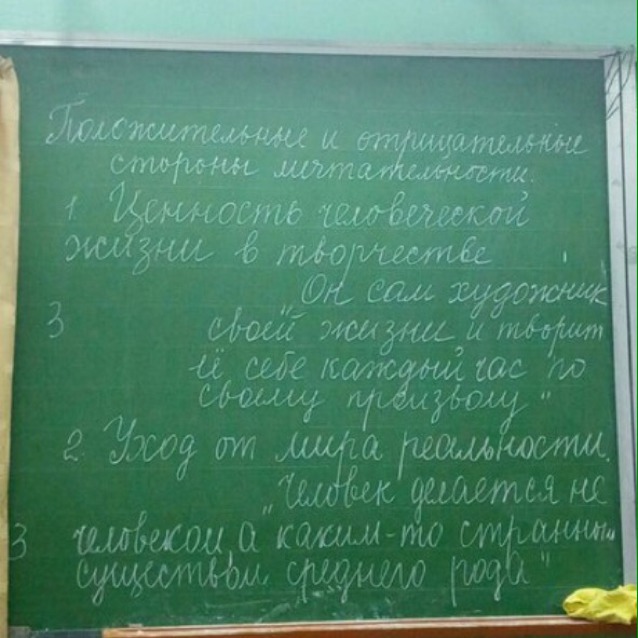 Положительные и отрицательные
стороны мечтательности.
1. Ценность человеческой
жизни в творчестве
„Он сам художник
3 своей жизни и творит
её себе каждый час по
своему произволу"
2. Уход от мира реальности.
„Человек делается не
3 человеком, а каким-то странным
существом среднего рода"